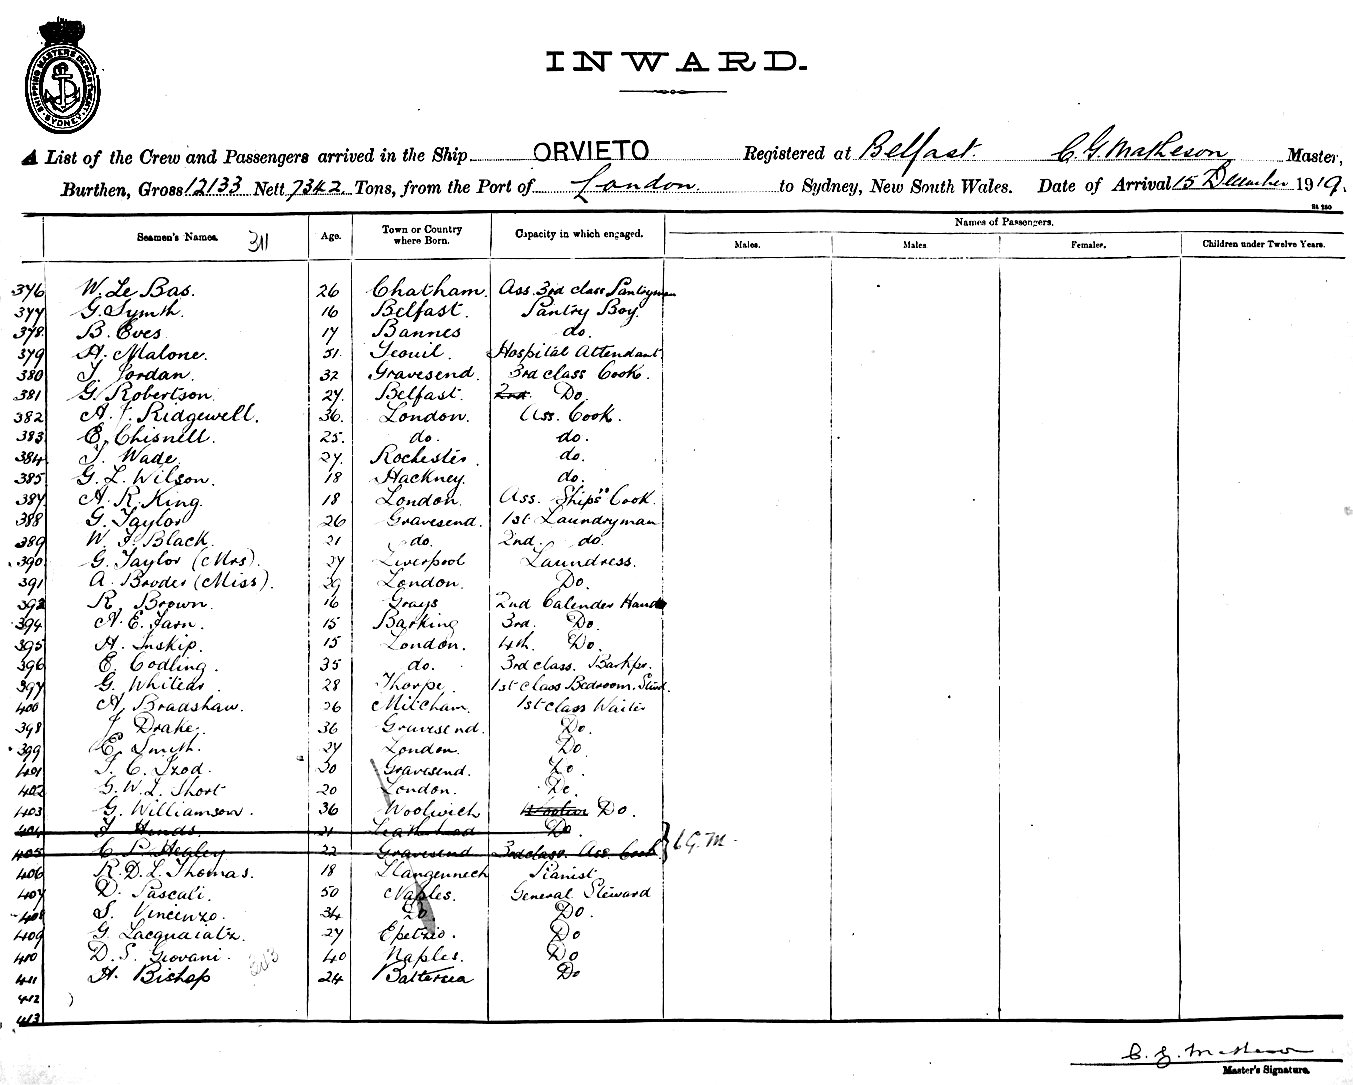 SHIPPING MASTERS DEPARTMENT SYDNEY
INWARD.
A List of the Crew and Passengers arrived in the Ship ORVIETO Registered at Belfast. C. G. Matheson Master,
Burthen, Gross 12133 Nett 7342 Tons, from the Port of London. to Sydney, New South Wales. Date of Arrival 15 December 1919.
Names of Passengers.
Seamen's Names. 311 Age. Town or Country where Born. Capacity in which engaged. Males. Males Females. Children under Twelve Years.
376 W. Le Bas. 26 Chatham. Ass. 3rd class Pantryman
377 G. Symth. 16 Belfast. Pantry Boy.
378 B. Eves 17 Bannes do.
379 A. Malone. 51 Yeouil. Hospital Attendant
380 J. Jordan. 32 Gravesend. 3rd class Cook.
381 G. Robertson. 27. Belfast. 2nd. Do.
382 A. J. Ridgewell. 36. London. Ass. Cook.
383 E. Chisnell. 25. do. do.
384 J. Wade 27. Rochester. do.
385 G. L. Wilson. 18 Hackney. do.
387 A. R. King. 18 London. Ass. Ships Cook.
388 G. Taylor 26 Gravesend. 1st Laundryman
389 W. J. Black. 21 do. 2nd. do.
390 G. Taylor (Mrs). 27 Liverpool Laundress.
391 A. Broder (Miss). 29 London. Do.
392 R. Brown. 16 Grays 2nd Calender Hand
394 A. E. Farn. 15 Barking 3rd. Do.
395 H. Inskip. 15 London. 4th. Do.
396 E. Codling. 35 do. 3rd class. Barkpr.
397 G. Whitear 28 Thorpe. 1st class Bedroom. Stwd.
400 A. Bradshaw. 26 Mitcham. 1st class Waiter
398 J. Drake. 36 Gravesend. Do.
399 E. Smith. 27 London. Do.
401 J. C. Izod. 30 Gravesend. Do.
402 G. W. L. Short 20 London. Do.
403 G. Williamson. 36 Woolwich Do.
404 J. Hinds. 21 Leatherhead Do.
405 C. P. Healey 22 Gravesend 3rd class. Ass. Cook. C.G.M.
406 R. D. L. Thomas. 18 Llangennech Pianist
407 D. Pascali. 50 Naples. General Steward
408 S. Vincenzo. 34 Do. Do.
409 G. Lacquaiatz. 27 Do
410 D. S. Giovani. 40 Naples. Do
411 H. Bishop 24 Battersea Do
412
413
C. G. Matheson
Master's Signature.